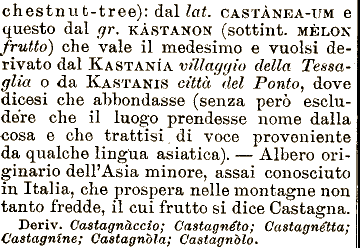 chestnut-tree): dal lat. CASTÀNEA-UM e
questo dal gr. KÁSTANON (sottint. MÈLON
frutto) che vale il medesimo e vuolsi de-
rivato dal KASTANÍA villaggio della Tessa-
glia o da KASTANIS città del Ponto, dove
dicesi che abbondasse (senza però esclu-
dere che il luogo prendesse nome dalla
cosa e che trattisi di voce proveniente
da qualche lingua asiatica). — Albero ori-
ginario dell'Asia minore, assai conosciuto
in Italia, che prospera nelle montagne non
tanto fredde, il cui frutto si dice Castagna.
Deriv. Castagnàccio; Castagnéto; Castagnétta;
Castagníne; Castagnòla; Castagnòlo.